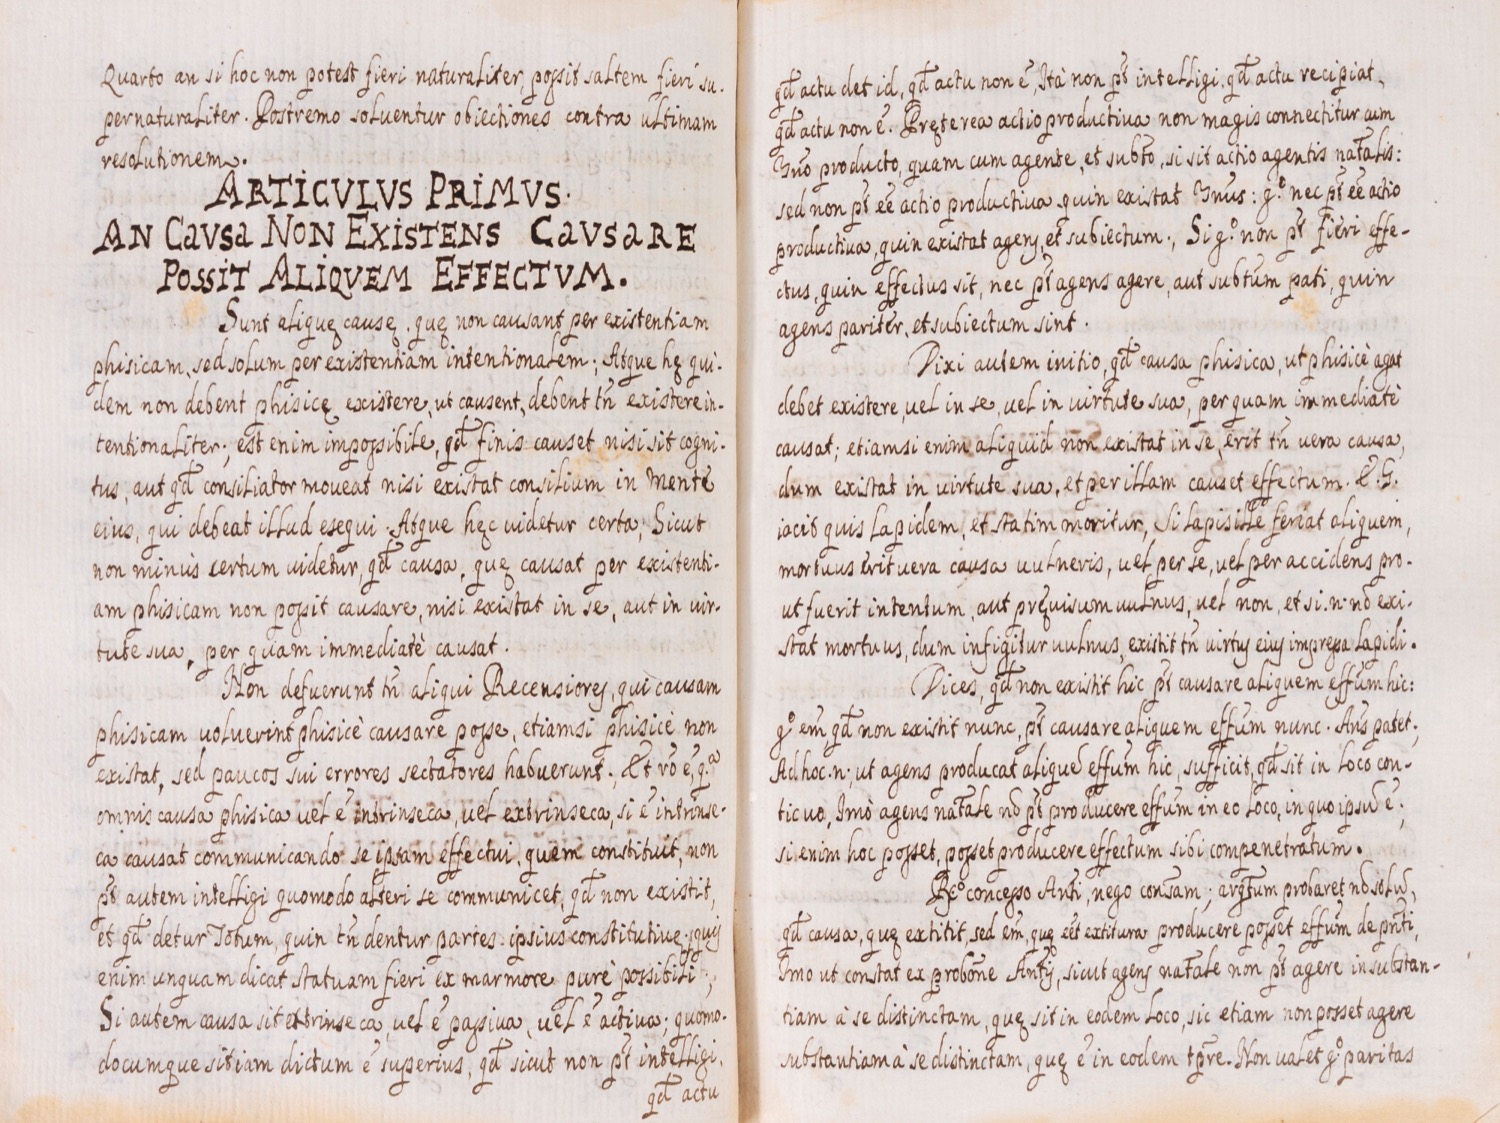 Quarto an si hoc non potest fieri naturaliter, possit saltem fieri su-
pernaturaliter. Postremo soluentur obiectiones contra ultimam
resolutionem.
ARTICVLVS PRIMVS.
AN CAVSA NON EXISTENS CAVSARE
POSSIT ALIQVEM EFFECTVM.
Sunt aliquę causę, quę non causant per existentiam
phisicam, sed solum per existentiam intentionalem; Atque hę qui-
dem non debent phisicę existere, ut causent, debent tñ existere in-
tentionaliter; est enim impossibile, qđ finis causet nisi sit cogni-
tus, aut qđ consiliator moueat nisi existat consilium in mente
eius, qui debeat illud esequi. Atque hęc uidetur certa; Sicut
non minùs certum uidetur, qđ causa, quę causat per existenti-
am phisicam non possit causare, nisi existat in se, aut in uir-
tute sua, per quam immediatè causat.
Non defuerunt tñ aliqui Recensiores, qui causam
phisicam uoluerint phisicè causare posse, etiamsi phisicè non
existat, sed paucos sui errores sectatores habuerunt; Et rõ ẽ, q.ª
omnis causa phisica uel ẽ intrinseca, uel extrinseca, si ẽ intrinse-
ca causat communicando se ipsam effectui, quem constituit, non
pt̃ autem intelligi quomodo alteri se communicet, qđ non existit,
et qđ detur Totum, quin tñ dentur partes ipsius constitutiuę; quis
enim unquam dicat statuam fieri ex marmore purè possibili;
Si autem causa sit extrinseca, uel ẽ passiua, uel ẽ actiua; quomo-
documque sit iam dictum ẽ superius, qđ sicut non pt̃ intelligi,
qđ actu
qđ actu det id, qđ actu non ẽ, Ità non pt̃ intelligi, qđ actu recipiat,
qđ actu non ẽ. Pręterea actio productiua non magis connectitur cum
Ɣno producto, quam cum agente, et subto, si sit actio agentis natãlis:
sed non pt̃ eẽ actio productiua quin existat Ɣnus: g.º nec pt̃ eẽ actio
productiua, quin existat agens, et subiectum; Si g.º non pt̃ fieri effe-
ctus, quin effectus sit, nec pt̃ agens agere, aut subtum pati, quin
agens pariter, et subiectum sint.
Dixi autem initio, qđ causa phisica, ut phisicè agat
debet existere, uel in se, uel in uirtute sua, per quam immediatè
causat; etiamsi enim aliquid non existat in se, erit tñ uera causa,
dum existat in uirtute sua, et per illam causet effectum. E. G.
iacit quis lapidem, et statim moritur, si lapis ille feriat aliquem,
mortuus erit uera causa uulneris, uel per se, uel per accidens pro-
ut fuerit intentum, aut pręuisum uulnus, uel non, et si .n. nõ exi-
stat mortuus, dum infigitur uulnus, existit tñ uirtus eius impressa lapidi.
Dices, qđ non existit hic pt̃ causare aliquem effũm hic:
g.º em̃, qđ non existit nunc, pt̃ causare aliquem effũm nunc. Añs patet;
Ad hoc .n; ut agens producat aliquẽ effũm hic, sufficit, qđ sit in loco con-
tiguo, Imò agens natãle nõ pt̃ producere effũm in eo loco, in quo ipsũ ẽ;
si enim hoc posset, posset producere effectum sibi compenetratum.
Rº concesso Añti, nego conseãm; argt̃um probaret nõ solũ,
qđ causa, quę extitit, sed em̃, quę eẽt extitura producere posset effũm de pñti,
Imo ut constat ex probõne Añtis, sicut agens natãle non pt̃ agere in substan-
tiam à se distinctam, quę sit in eodem loco, sic etiam non posset agere
substantiam à se distinctam, quę ẽ in eodem tp̃re. Non ualet g.º paritas